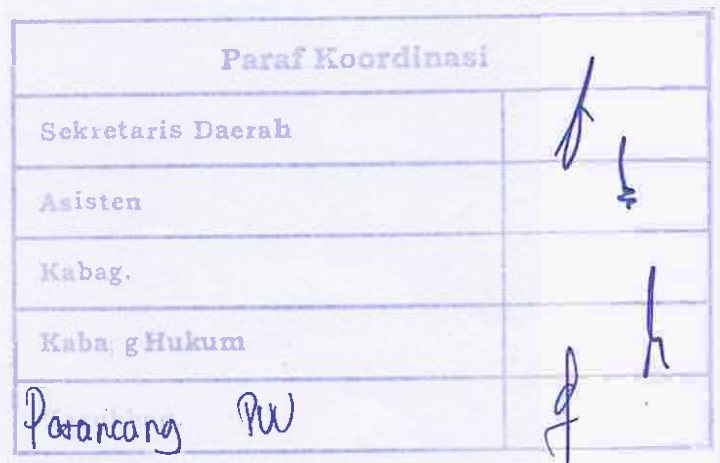 Paraf Koordinasi
Sekretaris Daerah
Asisten
Kabag.
Kabag Hukum
Perancang PUU